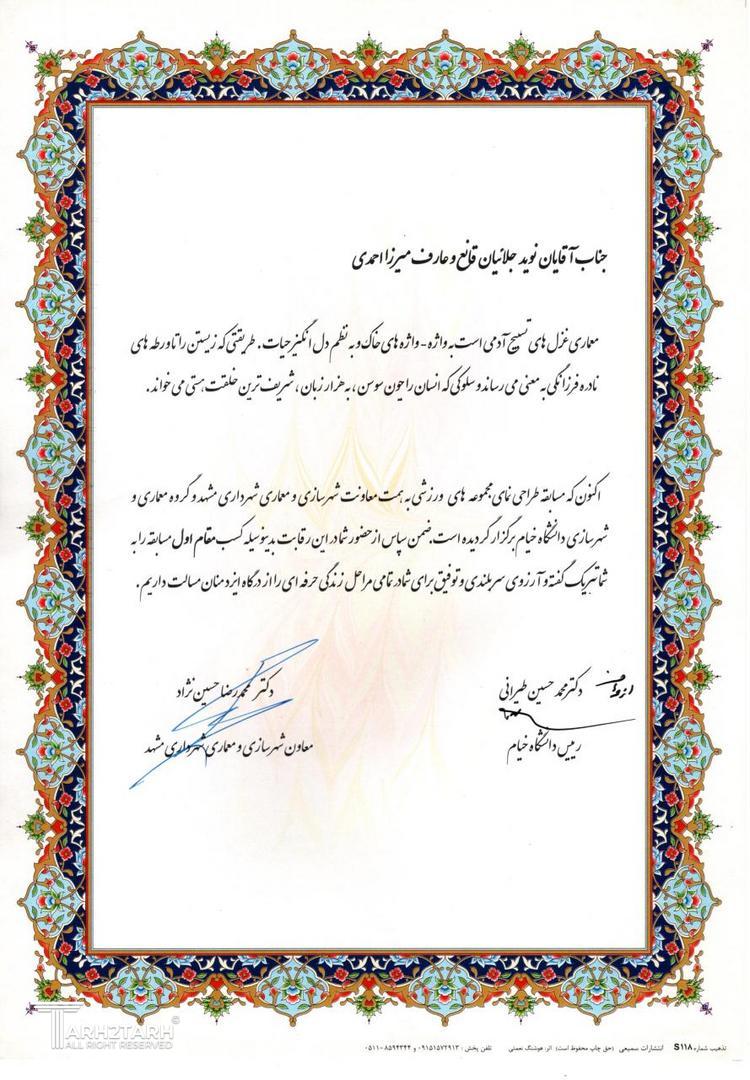 جناب آقایان نوید جلائیان قانع و عارف میرزا احمدی
معماری غزل های تسبیح آدمی است به واژه - واژه های خاک و به نظم دل انگیز حیات. طریقتی که زیستن را تا ورطه های
نادره فرزانگی به معنی می رساند و سلوکی که انسان را چون سوسن، به هزار زبان، شریف ترین خلقت هستی می خواند.
اکنون که مسابقه طراحی نمای مجموعه های ورزشی به همت معاونت شهرسازی و معماری شهرداری مشهد و گروه معماری و
شهرسازی دانشگاه خیام برگزار گردیده است، ضمن سپاس از حضور شما در این رقابت بدینوسیله کسب مقام اول مسابقه را به
شما تبریک گفته و آرزوی سربلندی و توفیق برای شما در تمامی مراحل زندگی حرفه ای را از درگاه ایزد منان مسالت داریم.
دکتر محمد حسین طیرانی
رییس دانشگاه خیام
دکتر محمدرضا حسین نژاد
معاون شهرسازی و معماری شهرداری مشهد
TARH2TARH©
ALL RIGHT RESERVED
تذهیب شماره S۱۱۸ انتشارات سمیعی (حق چاپ محفوظ است) اثر: هوشنگ نعمتی تلفن پخش: ۰۹۱۵۱۵۷۲۹۱۳ و ۸۵۹۴۳۴۴-۰۵۱۱